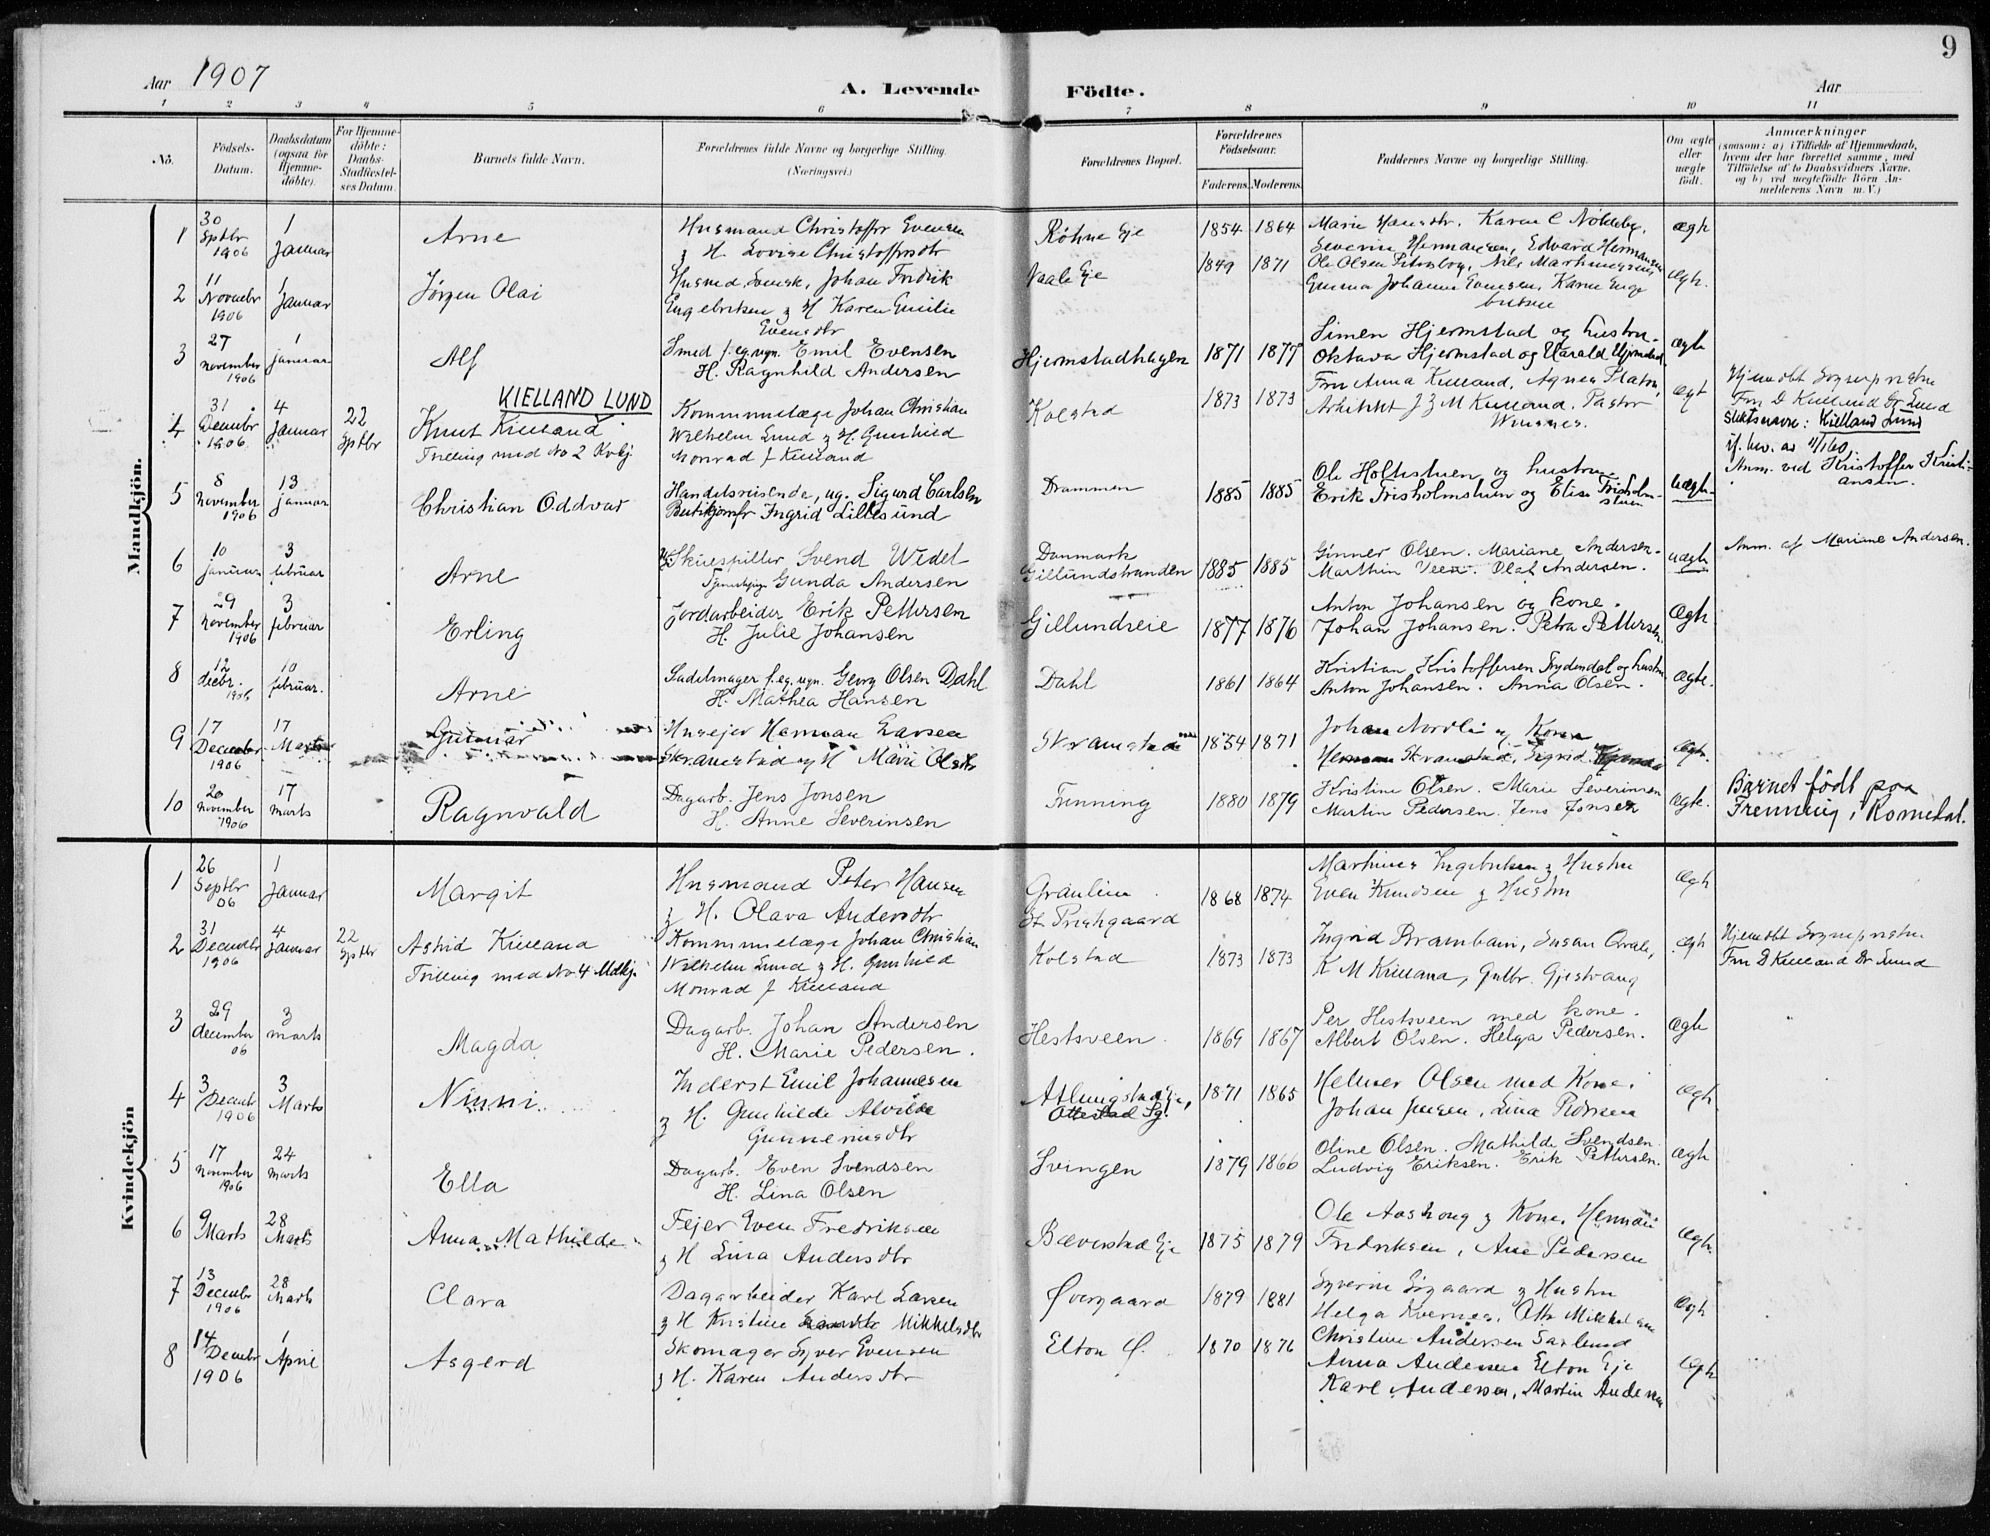 9
Aar 1907
A. Levende Födte.
Aar
1 2 3 4 5 6 7 8 9 10 11
No.
Födsels-
Datum.
Daabsdatum
(ogsaa for
Hjemme-
döbte).
For Hjemme-
döbte:
Daabs-
Stadfæstel-
ses Datum.
Barnets fulde Navn.
Forældrenes fulde Navne og borgerlige Stilling.
(Næringsvei.)
Forældrenes Bopæl.
Forældrenes
Födselsaar.
Faderens. Moderens.
Faddernes Navne og borgerlige Stilling.
Om ægte
eller
uægte
födt.
Anmærkninger
(saasom: a) i Tilfælde af Hjemmedaab,
hvem der har forrettet samme, med
Tilföielse af to Daabsvidners Navne.
og b) ved uægtefödte Börn An-
melderens Navn m. V.)
Mandkjön.
1
30
Sptbr
1906
1
Januar
Arne
Husmand Christoffer Evensen
& H. Lovise Christoffersdtr
Röhne Eje
1854 1864
Marie Hansdtr. Karen C Nöldeby.
Severin Hermansen, Edvard Hermansen
Ægte
2
11
Novembr
1906
1
Januar
Jörgen Olai
Husmd Svensk, Johan Fredrik
Engebretsen & H Karen Emilie
Evensdtr
Vaale Eje
1849 1871
Ole Olsen Nils Martinussen
Gunna Johanne Evensen, Karen Enge
bretsen
Ægte.
3
27
november
1906
1
januar
Alf
Smed f.eg.regn. Emil Evensen
H. Ragnhild Andersen
Hjermstadhagen
1871 1877
Simen Hjermstad og hustru.
Oktava Hjermstad og Harald Hjermstad
ægte
4
31.
Decembr
1906
4
Januar
22
Sptbr
KIELLAND LUND
Knut Kielland
Trilling med No 2 Kvkj
Kommunelæge Johan Christian
Wilhelm Lund & H. Gunhild
Monrad f Kielland
Kolstad
1873 1873
Fru Anna Kielland, Agnes Platou,
Arkitekt J Z M Kielland, Pastor
Wiesnes.
ægt
Hjemdbt Sogneprestne
Fru D Kielland Dr Lund
Slektsnavn: Kielland Lund
jf. bev. av 4/1 60
5
8
november
1906
13
januar
Christian Oddvar
Handelsreisende, ug. Sigurd Carlsen
Butikjomfr Ingrid Lillesund
Drammen
1885 1885
Ole Holtestuen og hustru
Erik Frisholmstuen og Elise Frisholm-
stuen
uægte.
Anm. ved Kristoffer Kristi-
ansen.
6
10
januar
3
februar
Arne
Skuespiller Svend Wedel
Tjenestepige Gunda Andersen
Danmark
Gillundstranden
1885 1885
Ginner Olsen. Mariane Andersen.
Marthin Veen. Olaf Andersen.
uægte
Anm. af Mariane Andersen.
7
29
november
1906
3
februar
Erling
Jordarbeider Erik Pettersen
H. Julie Johansen
Gillundseie
1877 1876
Anton Johansen og kone.
Johan Johansen. Petra Pettersen.
Ægte.
8
12
decbr.
1906
10
februar.
Arne
Sadelmager f.eg.regn. Georg Olsen Dahl
H. Mathea Hansen
Dahl
1861 1864
Kristian Kristoffersen Frydendal og hustru
Anton Johansen. Anna Olsen.
Ægte.
9
17
December
1906
17
Marts
Gunnar
Husejer Herman Larsen
Skramstad og H Marie Olsdtr
Skramstad
1854 1871
Johan Nordli og Kone
Herman Skramstad, Sigrid
Ægte.
10
20
november
1906
17
marts
Ragnvald
Dagarb. Jens Jonsen
H. Anne Severinsen
Frenning
1880 1879
Kristine Olsen. Marie Severinsen
Martin Pedersen. Jens Jonsen
Ægte.
Barnet födt paa
Frenning i Romedal.
Kvindekjön
1
26
Septbr
06
1
Januar
Margit
Husmand Peter Hansen
& H. Olava Andersdtr
Graulien
St Prestgaard
1868 1874
Martinus Ingebretsen & Hustru
Even Knudsen & Hustru
Ægte
2
31
Decembr
1906
4
Januar
22
Sptbr
Astrid Kielland
Trilling med No 4 Mdkj
Kommunelæge Johan Christian
Wilhelm Lund & H. Gunhild
Monrad f Kielland
Kolstad
1873 1873
Ingrid Brambani, Susan Qvale,
K M Kielland, Gulbr. Gjestvang
Ægte
Hjemdbt Sogneprestne
Fru D Kielland Dr Lund
3
29
december
06
3
marts
Magda
Dagarb. Johan Andersen
H. Marie Pedersen.
Hestsveen.
1869 1867
Per Hestsveen med kone.
Albert Olsen. Helga Pedersen.
Ægte
4
3
Decembr
1906
3
Marts
Ninni
Inderst Emil Johannesen
& H. Gunhilde Alvilde
Gunnerusdtr
Atlungstad Eje,
Ottestad Sg.
1871 1865
Helmer Olsen med Kone.
Johan Jensen, Lina Pedersen
Ægte
5
17
november
1906
24
marts
Ella
Dagarb. Even Svendsen
H. Lina Olsen
Svingen
1879 1866
Oline Olsen. Mathilde Svendsen.
Ludvig Eriksen. Erik Pettersen.
Ægte
6
9
Marts
28
Marts
Anna Mathilde
Fejer Even Fredriksen
& H Lina Andersdtr
Bæverstad Eje
1875 1879
Ole Aashoug & Kone, Herman
Fredriksen, Ane Pedersen
Ægte.
7
13
Decembr
1906
28
Marts
Clara
Dagarbeider Karl Larsen
& H Kristine Mikkelsdtr
Övergaard
1879 1881
Syverin Sögaard & Hustru
Helga Kvernes, Otto Mikkelsen
Ægte
8
14
Decembr
1906
1
April
Asgerd
Skomager Syver Evensen
& H. Karen Andersdtr
Elton Ö.
1870 1876
Christine Andersen Saxlund
Anna Andersen Elton Eje
Karl Andersen, Martin Andersen
Ægte